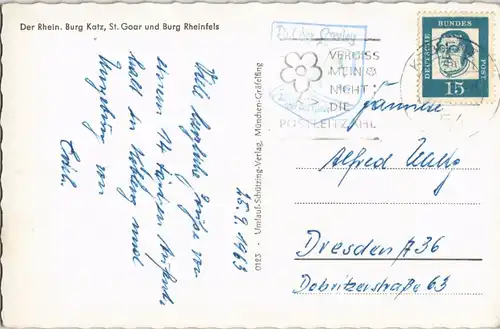 Der Rhein. Burg Katz, St. Goar und Burg Rheinfels
Viele herzliche Grüße von
unserem 14 tägigen Aufent-
halt in Koblenz und
Umgebung von
25.9.1963
0123 · Umlauf-Schützing-Verlag, München-Gräfelfing
VERGISS
MEIN
NICHT
DIE
POSTLEITZAHL
DEUTSCHE BUNDES POST
15
Familie
Alfred
Dresden A 36
Dobritzerstraße 63